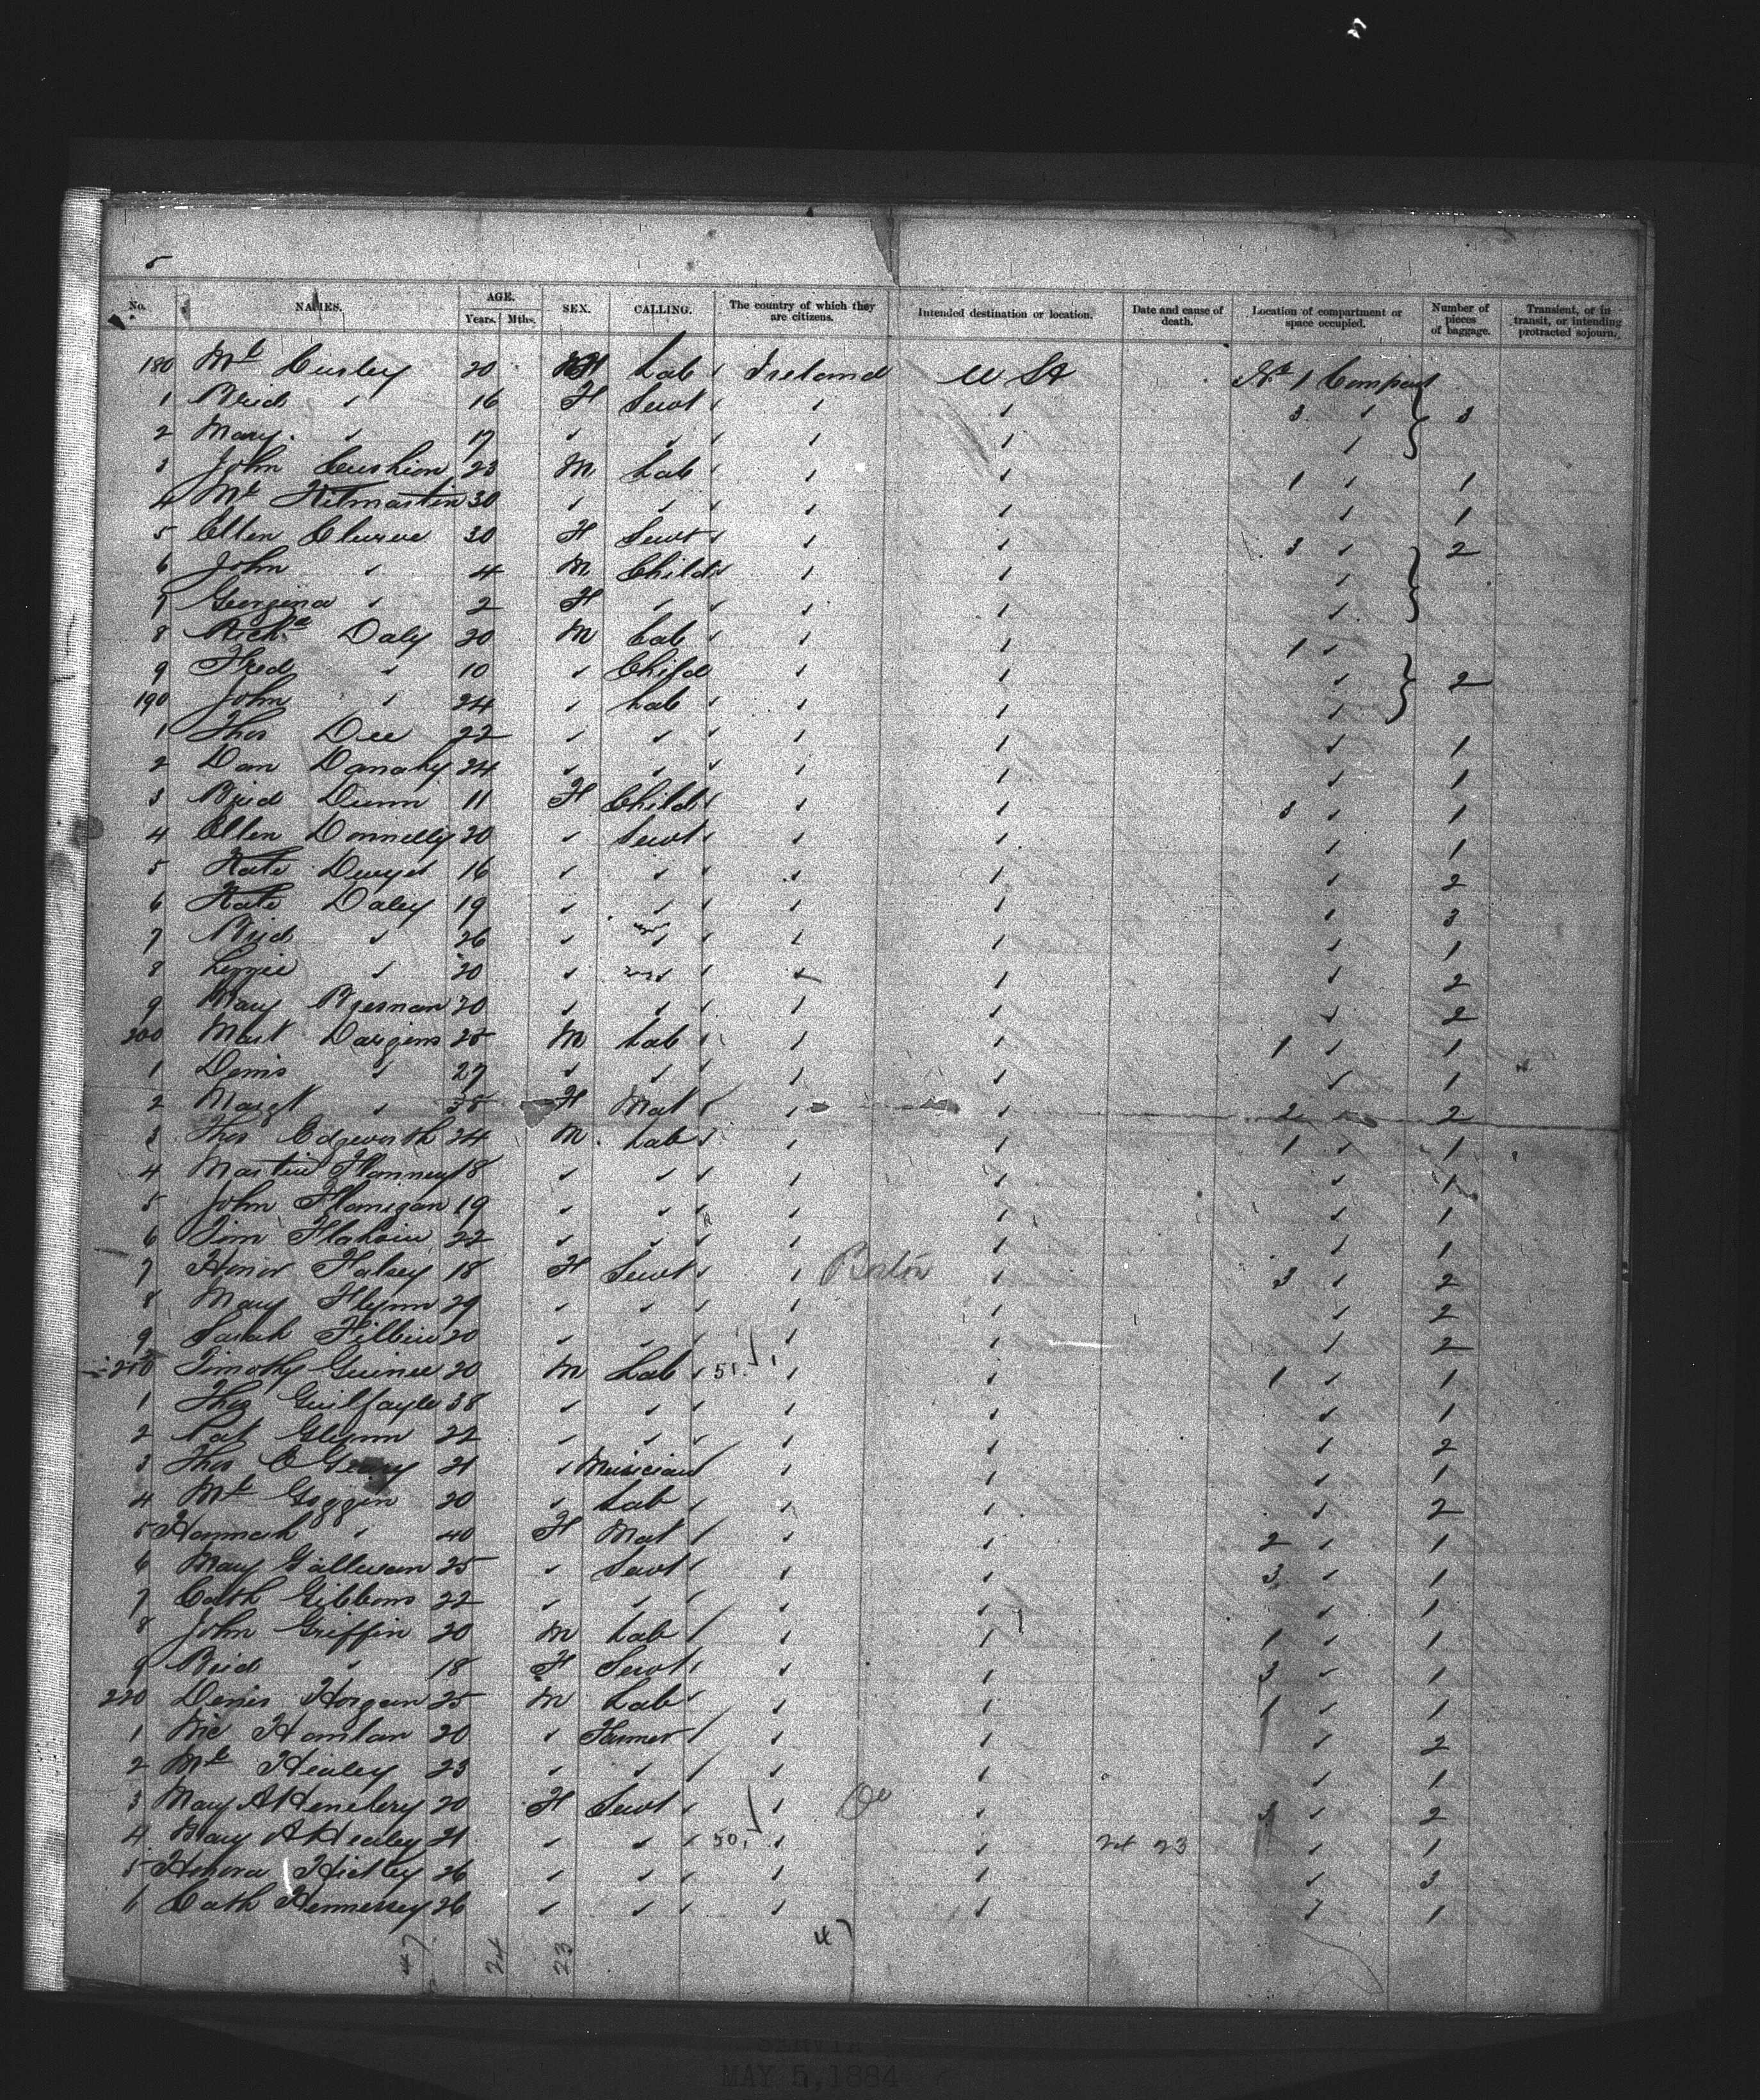 5
No. NAMES. AGE. Years. Mths. SEX. CALLING. The country of which they are citizens. Intended destination or location. Date and cause of death. Location of compartment or space occupied. Number of pieces of baggage. Transient, or in transit, or intending protracted sojourn.
180 Ml Curley 20 M Lab Ireland U St No 1 Compart
1 Brid " 16 F Servt " " 3 " 3
2 Mary " 17 " " " " "
3 John Cushion 23 M Lab " " 1 " 1
4 Ml Kilmartin 30 " " " " " 1
5 Ellen Clurue 30 F Servt " " 3 " 2
6 John " 4 M Child " " "
7 Georgina " 2 F " " " "
8 Richd Daly 20 M Lab " " 1 "
9 Fred " 10 " Child " " " 2
190 John " 24 " Lab " " "
1 Thos Dee 22 " " " " " 1
2 Dan Danahy 24 " " " " " 1
3 Brid Dunn 11 F Child " " 3 " 1
4 Ellen Donnelly 20 " Servt " " " 1
5 Kate Dwyer 16 " " " " " 2
6 Kate Daley 19 " " " " " 3
7 Brid " 26 " " " " " 1
8 Lizzie " 20 " " " " " 2
9 Mary Bresnan 20 " " " " " 2
200 Mart Dargins 25 M Lab " " 1 " 1
1 Denis " 27 " " " " " 1
2 Margt " 38 F Mat " " 2 " 2
3 Thos Edgworth 24 M Lab " " 1 " 1
4 Martin Flannery 18 " " " " " 1
5 John Flanigan 19 " " " " " 1
6 Tim Flahain 22 " " " " " 1
7 Honor Falsey 18 F Servt " Boston " 3 " 2
8 Mary Flynn 29 " " " " " 2
9 Sarah Filbin 20 " " " " " 2
210 Timothy Guinee 20 M Lab 51 " " 1 " 1
1 Thos Guilfayle 38 " " " " " 1
2 Pat Glynn 22 " " " " " 2
3 Thos O Geary 21 " Musician " " " 1
4 Ml Goggin 20 " Lab " " " 2
5 Hannah " 40 F Mat " " 2 " 1
6 Mary Gallivan 25 " Servt " " 3 " 1
7 Cath Gibbons 22 " " " " " 1
8 John Griffin 20 M Lab " " 1 " 1
9 Brid " 18 F Servt " " 3 " 1
220 Denis Horgan 25 M Lab " " 1 " 1
1 Mic Hanlan 20 " Farmer " " " 2
2 Ml Healey 23 " " " " " 1
3 Mary A Henebry 20 F Servt " Do " 3 " 2
4 Mary A Healey 21 " " 50 " " 24 23 " 1
5 Honora Hickey 26 " " " " " 3
6 Cath Hennessy 26 " " " " " 1
47 24 23 47
SERVIA
MAY 5, 1884